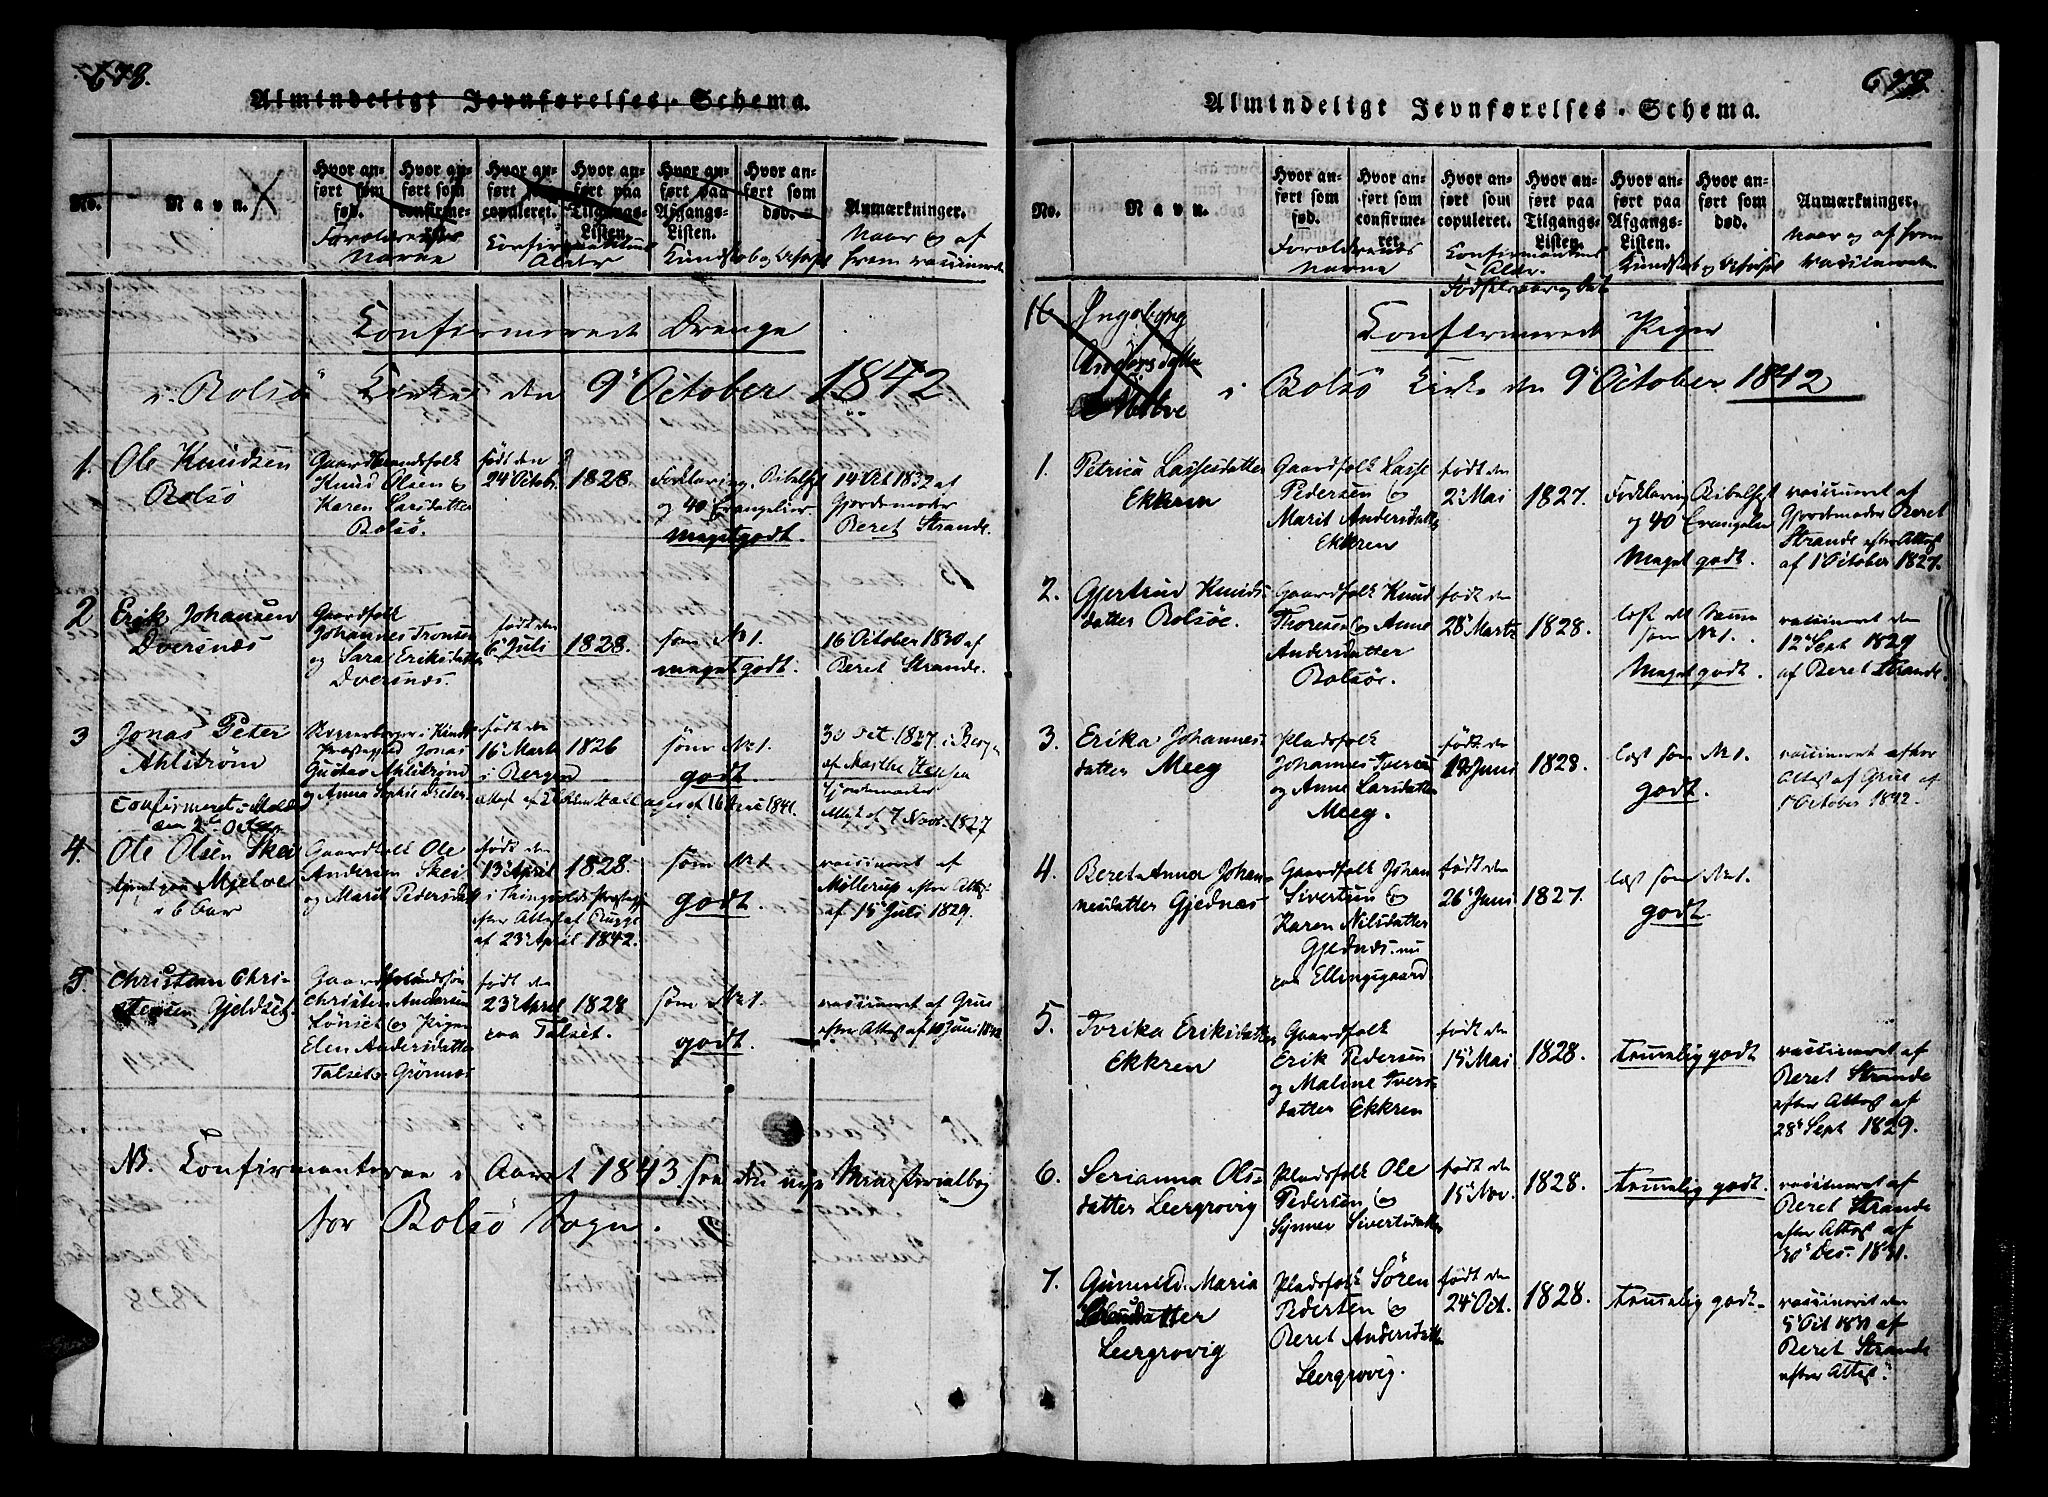 678.
Almindeligt Jevnførelses-Schema.
No.
Navn.
Hvor anført som fød.
Hvor anført som confirmeret.
Hvor anført som copuleret.
Hvor anført paa Tilgangs-Listen.
Hvor anført paa Afgangs-Listen.
Hvor anført som død.
Anmærkninger.
Forældrenes Navne
Confirmantens Alder
Kundskab og Opførsel
Naar og af hvem vaccineret
Confirmerede Drenge
i Bolsö Kirke den 9de October 1842.
1. Ole Knudsen
Bolsö
Gaardmandsfolk
Knud Olsen og
Karen Larsdatter
Bolsö.
født den
24 Octob. 1828.
Forklaring, Bibelhist
og 40 Evangelier
meget godt.
14 Oct 1832 af
Gjordemoder
Beret Strande.
2 Erik Johansen
Dversnæs
Gaardfolk
Johannes Tronsen
og Sara Eriksdatter
Dversnæs.
født den
6 Juli 1828.
som No 1.
meget godt.
16 October 1830 af
Beret Strande.
3 Jonas Peter
Ahlström
Confirmeret i Molde
den 2d October
Jonas
Gustav Ahlström
og Anna Sophie Peder
født den
16 Marts 1826
i Bergen
Attest af 16 Juni 1841.
som No 1.
godt
30 Oct. 1827 i Bergen
af Marthe
Gjordemoder
Attest af 7 Novb. 1827
4. Ole Olsen Skei
tjent paa Mjelve
i 6 Aar
Gaardfolk Ole
Andersen Skei
og Marit Pedersdatter
født den
13 April 1828.
i Thingvolds Præstegj
efter Attest af Bugge
af 23 April 1842.
som No 1
godt.
vaccineret af
Möllerup efter Attest
af 15 Juli 1829.
5. Christian Christensen Gjeldset.
Christen Andersen
Lönset og Pigen
Elen Andersdatter
Talset Grönnæs
født den
23 April 1828
paa Talset.
som No 1.
godt.
vaccineret af Grue
efter Attest af 10 Juni 1842
NB. Confirmanterne i Aaret 1843 see den nye Ministerialbog
for Bolsö Sogn.
679
Almindeligt Jevnførelses-Schema.
No.
Navn.
Hvor anført som fød.
Hvor anført som confirmeret.
Hvor anført som copuleret.
Hvor anført paa Tilgangs-Listen.
Hvor anført paa Afgangs-Listen.
Hvor anført som død.
Anmærkninger.
Forældrenes Navne
Confirmantens Alder.
Fødselsaar og Dat
Kundskab og Opførsel
Naar og af hvem vaccineret
16 Ingeborg
Andersdatter
Mjelve
Confirmerede Piger
i Bolsö Kirke den 9de October 1842
1. Petrica Lassesdatter
Ekkren
Gaardfolk Lasse
Pedersen og
Marit Andersdatter
Ekkren
født den
2 Mai 1827.
Forklaring Bibelhist
og 40 Evangelier
Meget godt.
vaccineret af
Gjordemoder Beret
Strande efter Attest
af 1 October 1827.
2. Gjertrud Knudsdatter Bolsöe.
Gaardfolk Knud
Thoresen og Anne
Andersdatter
Bolsöe.
født den
28 Marts 1828.
læst det samme
som No 1.
Meget godt.
vaccineret den
12 Sept 1829
af Beret Strande.
3. Erika Johannesdatter Meeg
Pladsfolk
Johannes Iversen
og Anne Larsdatter
Meeg.
født den
Juni 1828.
læst som No 1.
godt.
vaccineret efter
Attest af Grue af
1 October 1842.
4. Beret Anna Johannesdatter Gjednæs
Gaardfolk Johan
Sivertsen og
Karen Nilsdatter
Gjednæs. nu
paa Ellingsgaard
født den
26 Juni 1827.
læst som No 1.
godt.
5. Iverika Eriksdatter
Ekkren
Gaardfolk
Erik Pedersen
og Maline Iversdatter Ekkren
født den
15 Mai 1828.
temmelig godt
vaccineret af
Beret Strande
efter Attest af
28 Sept 1829.
6. Serianna Olsdatter Leergrovig
Pladsfolk Ole
Pedersen og
Synnev Sivertsdatter
født den
15 Nov. 1828.
temmelig godt.
vaccineret af
Beret Strande
efter Attest af
30 Dec. 1831.
7. Gunnild Maria
Leergrovig
Pladsfolk Sören
Pedersen og
Beret Andersdatter
Leergrovig.
født den
24 Oct. 1828.
temmelig godt.
vaccineret den
5 Oct 1831 af
Beret Strande
efter Attest.